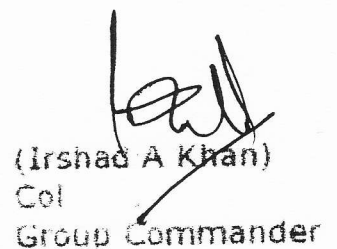 (Irshad A Khan)
Col
Group Commander